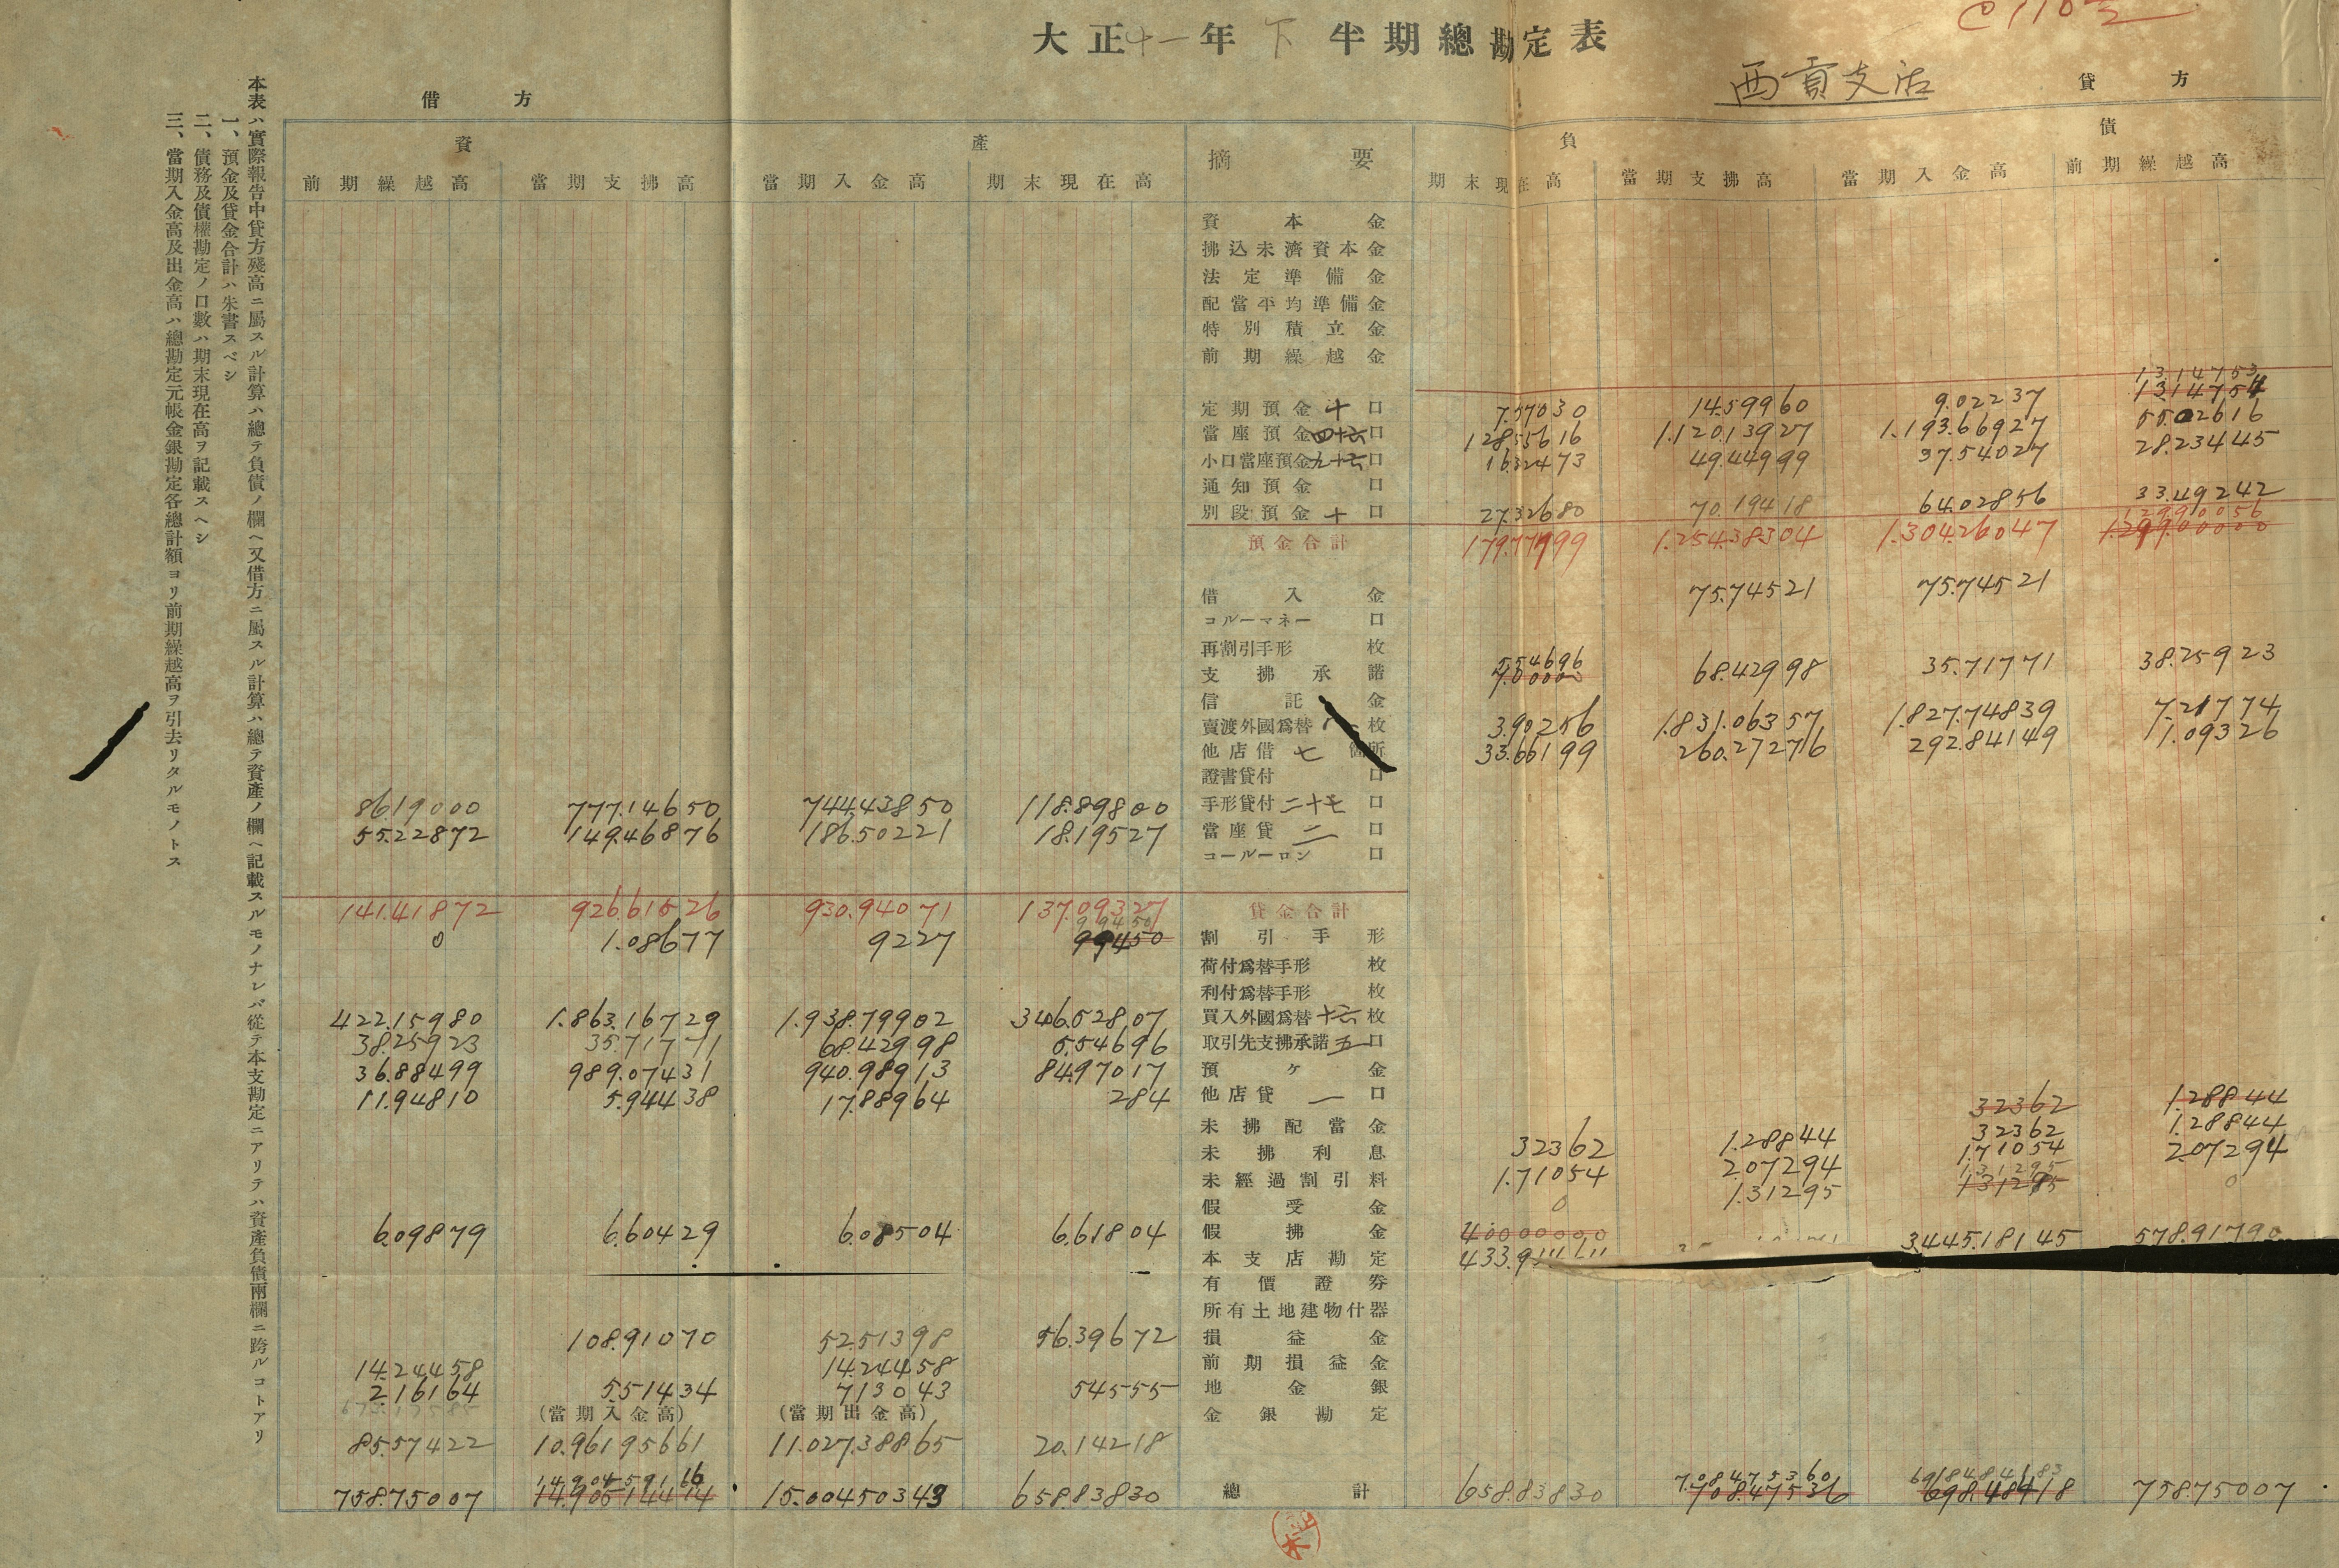 大正十一年下半期總勘定表
西貢支店
借方
貸方
資產
摘要
負債
前期繰越高 當期支拂高 當期入金高 期末現在高
期末現在高 當期支拂高 當期入金高 前期繰越高
資本金
拂込未濟資本金
法定準備金
配當平均準備金
特別積立金
前期繰越金
1314753
1314754
定期預金十口 757030 1459960 902237
當座預金四十六口 12855616 1.12013927 1.19366927 5502616
小口當座預金九十六口 1632473 49.44999 37.54027 28.23445
通知預金口
別段預金十口 27.32680 70.19418 64.02856 33.49242
12990056
預金合計 179.77799 1.254.38304 1.304.26047 1.29900000
借入金 75.74521 75.74521
コルーマネー口
再割引手形枚
支拂承諾 5.54696 68.42998 35.71771 38.25923
信託金
賣渡外國爲替枚 3.90256 1.831.06357 1.827.74839 7.21774
他店借七箇所 33.66199 260.27276 292.84149 1.09326
證書貸付口
8619000 777.14650 744.43850 118.89800 手形貸付二十七口
55.22872 149.46876 186.50221 18.19527 當座貸二口
コールーロン口
141.41872 926.61526 930.94071 137.09327 貸金合計
99450
0 1.08677 9227 99450 割引手形
荷付爲替手形枚
利付爲替手形枚
422.15980 1.863.16729 1.938.79902 346.52807 買入外國爲替十六枚
38.25923 35.71771 68.42998 5.54696 取引先支拂承諾五口
36.88499 989.07431 940.98913 84.97017 預ヶ金
11.94810 5.94438 17.88964 284 他店貸一口
32362 1.28844
未拂配當金 32362 1.28844
未拂利息 32362 1.28844 1.71054 2.07294
未經過割引料 1.71054 2.07294 131295
假受金 0 1.31295 131295 0
6.09879 6.60429 6.08504 6.61804 假拂金 400000000
本支店勘定 3445.18145 578.91790
有價證券
所有土地建物什器
108.91070 52.51398 56.39672 損益金
14.24458 14.24458 前期損益金
2.16164 5.51434 713043 54555 地金銀
(當期入金高) (當期出金高) 金銀勘定
85.57422 10.96195661 11.027.38865 20.14218
14.904.59116 7.084.75360 6918484183
758.75007 15.00450343 658.83830 總計 658.83830 758.75007
本表ハ實際報吿中貸方殘高ニ屬スル計算ハ總テ負債ノ欄ヘ又借方ニ屬スル計算ハ總テ資產ノ欄ヘ記載スルモノナレバ從テ本支勘定ニアリテハ資產負債兩欄ニ跨ルコトアリ
一、預金及貸金合計ハ朱書スベシ
二、債務及債權勘定ノ口數ハ期末現在高ヲ記載スヘシ
三、當期入金高及出金高ハ總勘定元帳金銀勘定各總計額ヨリ前期繰越高ヲ引去リタルモノトス